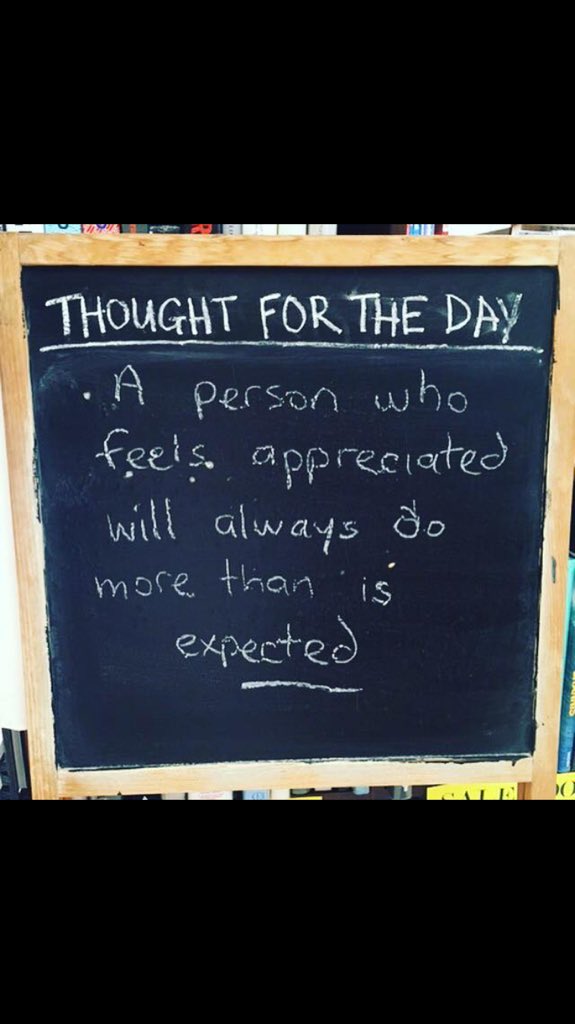 THOUGHT FOR THE DAY
. A person who
feels appreciated
will always do
more than is
expected
SALE